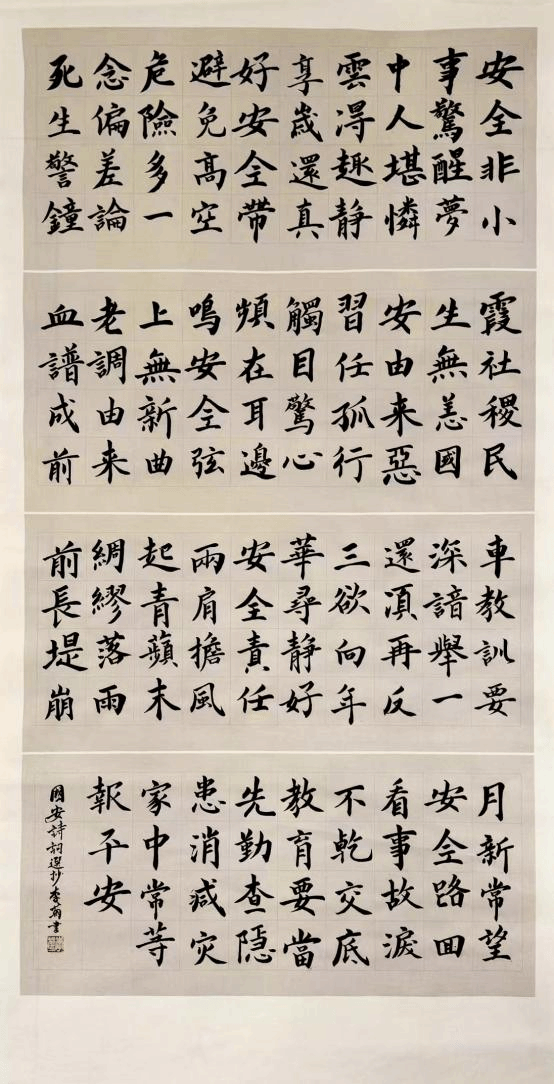 安全非小
事驚醒夢
中人堪憐
雲淂趣静
享歲還真
好安全帶
避免高空
危險多一
念偏差論
死生警鐘
霞社稷民
生無恙國
安由来惡
習任孤行
觸目驚心
頻在耳邊
鳴安全弦
上無新曲
老調由来
血譜成前
車教訓要
深諳舉一
還須再反
三欲向年
華尋静好
安全責任
兩肩擔風
起青蘋末
綢繆落雨
前長堤崩
月新常望
安全路回
看事故淚
不乾交底
教育要當
先勤查隱
患消滅灾
家中常等
報平安
國安詩詞選抄李
書